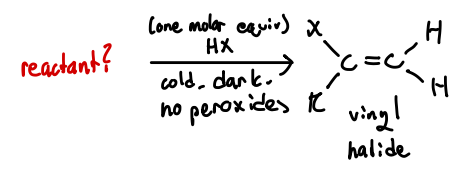 reactant?
(one molar equiv)
HX
cold, dark,
no peroxides
X
R
C=C
H
H
vinyl
halide